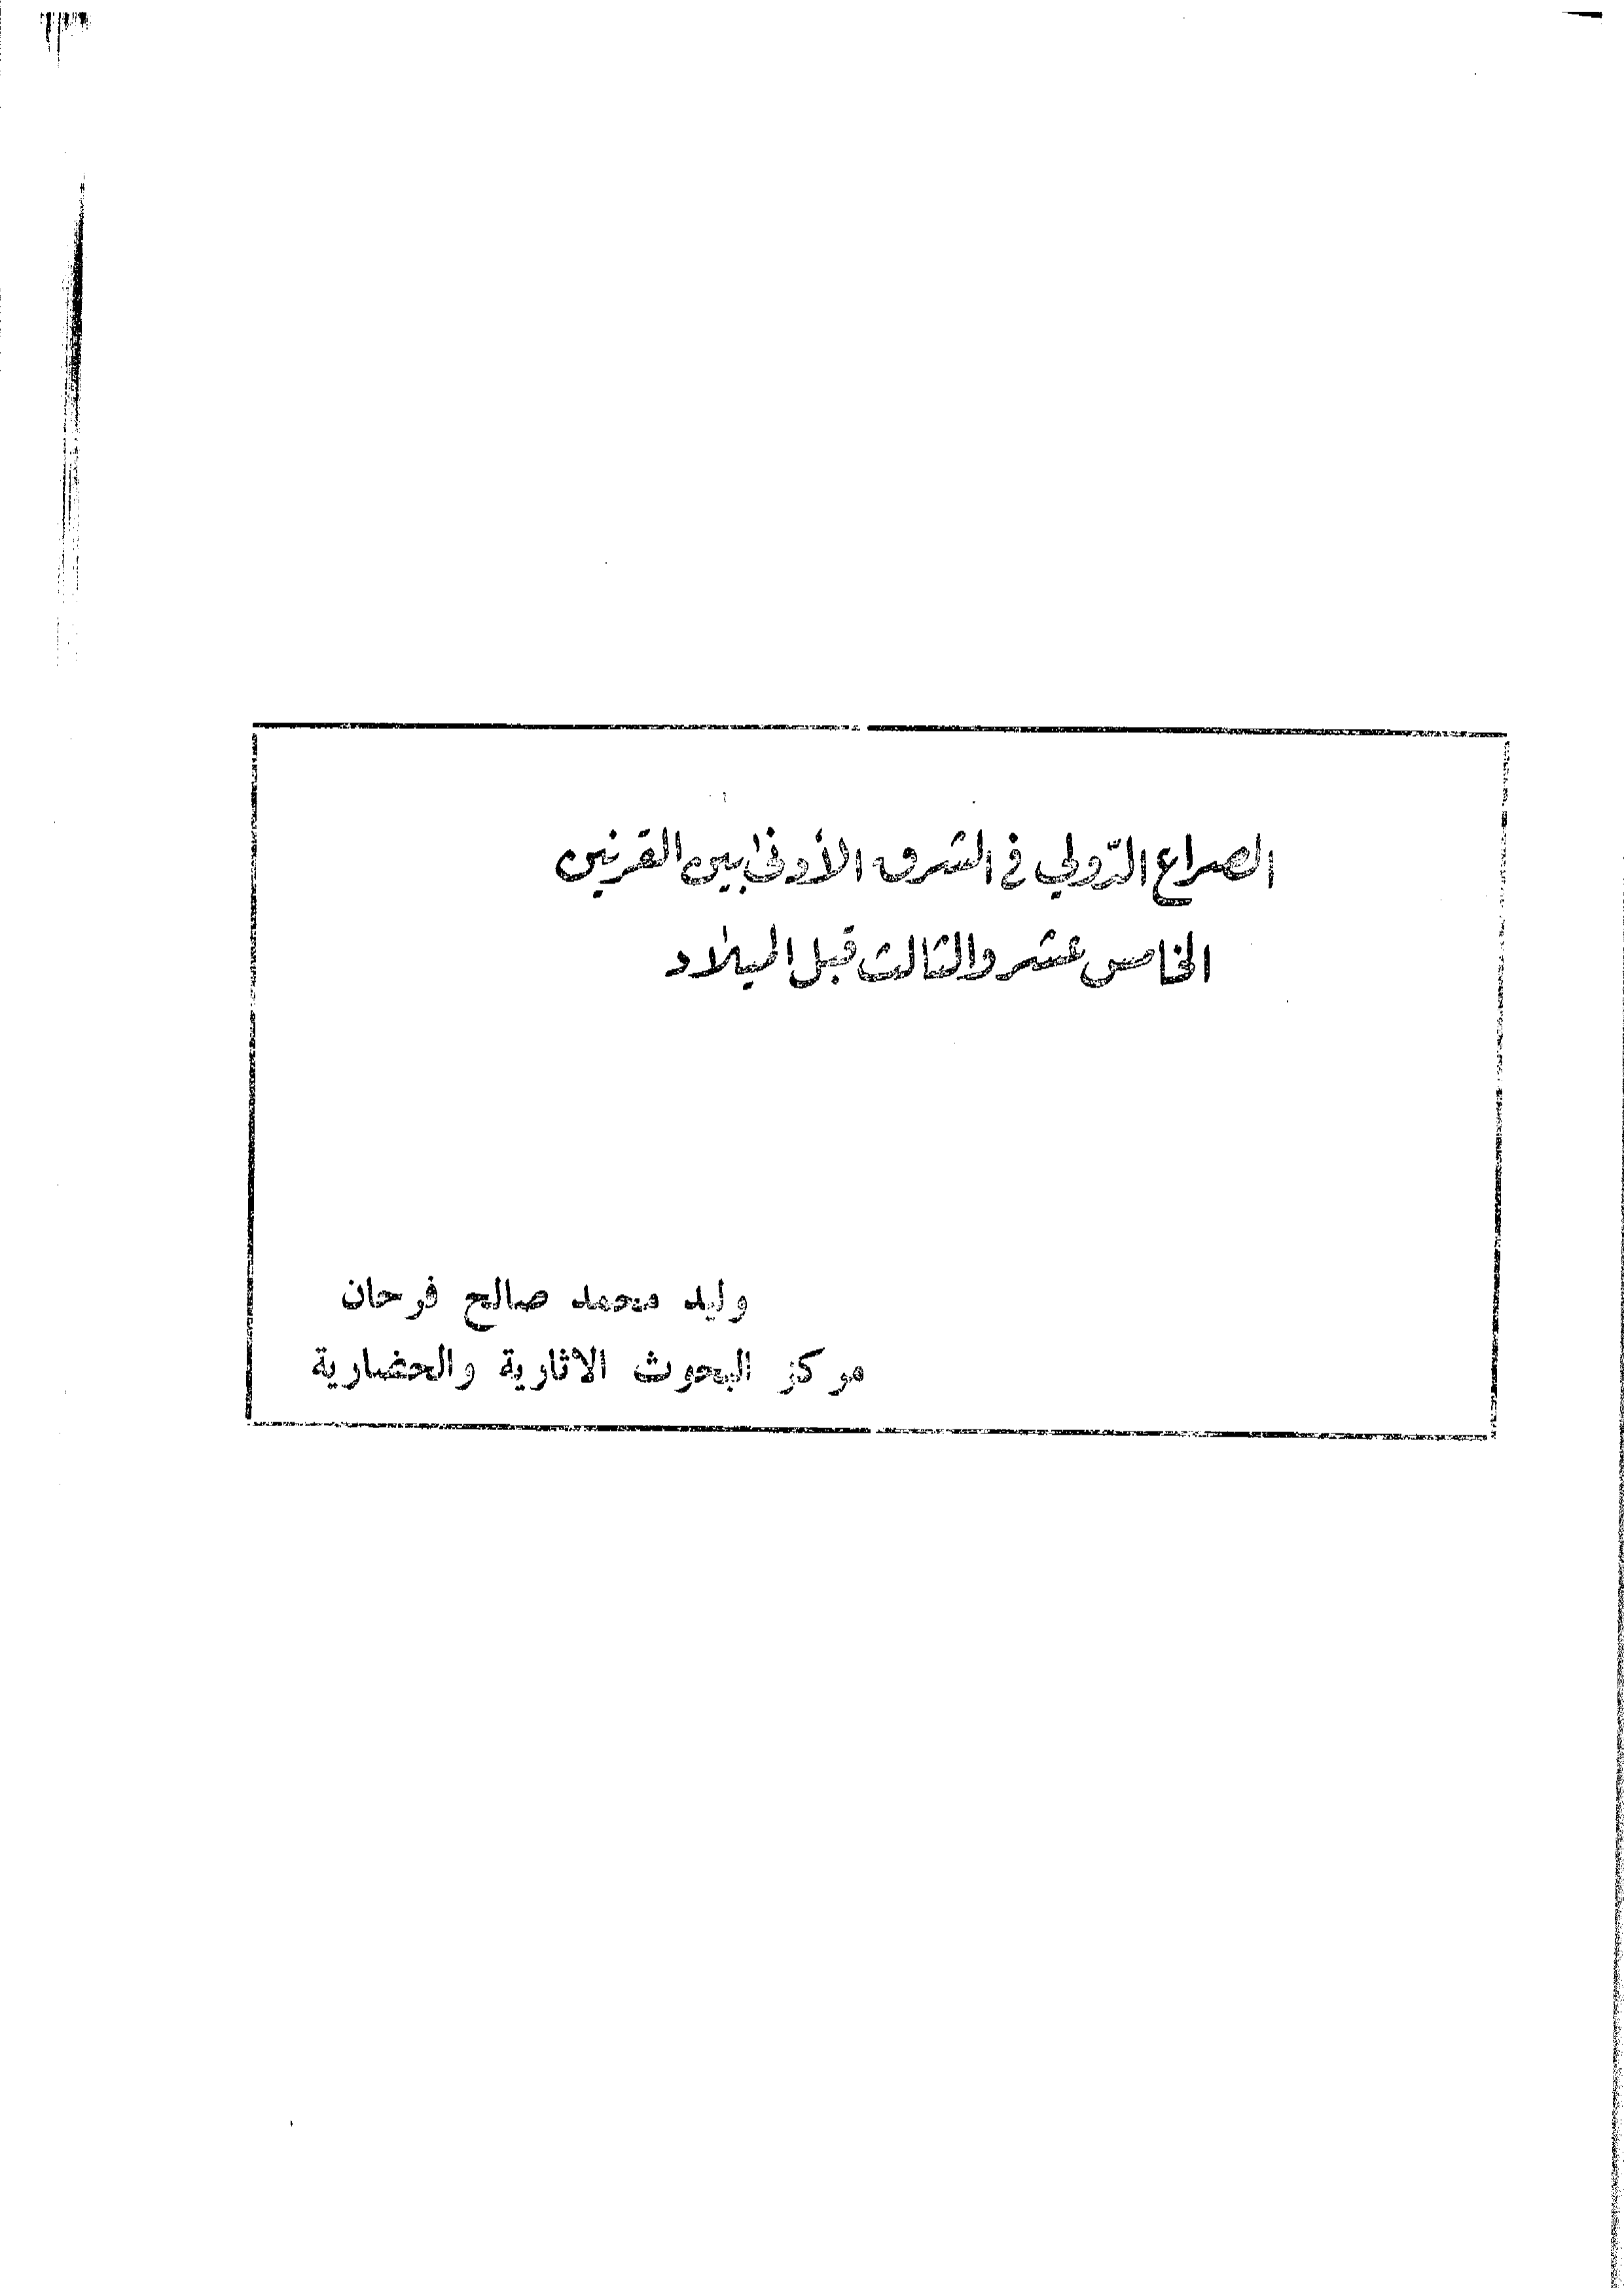 الصراع الدّولي في الشرق الأدنى بين القرنين
الخامس عشر والثالث قبل الميلاد
وليد محمد صالح فرحان
مركز البحوث الاثارية والحضارية